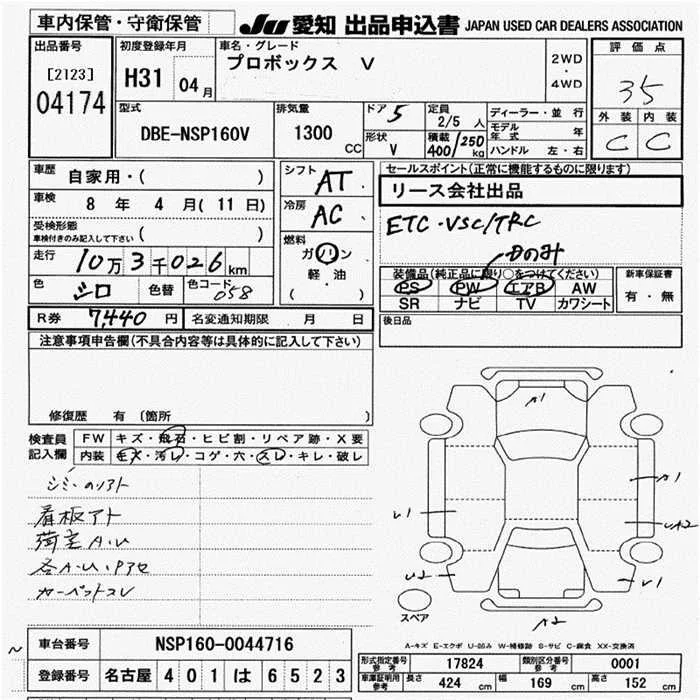 車内保管・守衛保管 JU 愛知 出品申込書 JAPAN USED CAR DEALERS ASSOCIATION
出品番号 初度登録年月 車名・グレード 評価点
[2123] H31 04月 プロボックス V 2WD・4WD 35
04174 外装 内装
型式 排気量 ドア 5 定員 2/5人 ディーラー・並行 C C
DBE-NSP160V 1300CC 形状 V 積載 400/250kg モデル年式 年
ハンドル 左・右
車歴 自家用・( ) シフト AT セールスポイント(正常に機能するものに限ります)
車検 8年 4月(11日) 冷房 AC リース会社出品
受検形態 車検付きのみ記入して下さい ( ) ETC・VSC/TRC
走行 10万3千026km 燃料 ガソリン 軽油 ( ) Dのみ
色 シロ 色替 色コード 058 装備品(純正品に限り○をつけてください) 新車保証書
PS PW エアB AW 有・無
SR ナビ TV カワシート
R券 7,440円 名変通知期限 月 日 後日品
注意事項申告欄(不具合内容等は具体的に記入して下さい)
修復歴 有 (箇所 )
検査員記入欄 FW キズ・飛石・ヒビ割・リペア跡・X要
内装 キズ・汚レ・コゲ・穴・スレ・キレ・破レ
看板アト
荷室A・U
カーペットコレ
A1
A1
U1
UA2
U2
U1
A2
スペア
A-キズ E-エクボ U-凹み W-補修跡 S-サビ C-腐食 XX-交換済
車台番号 NSP160-0044716
登録番号 名古屋 401 は 6523
形式指定番号 参考 17824 類別区分番号 参考 0001
車庫証明用 参考 長さ 424cm 幅 169cm 高さ 152cm